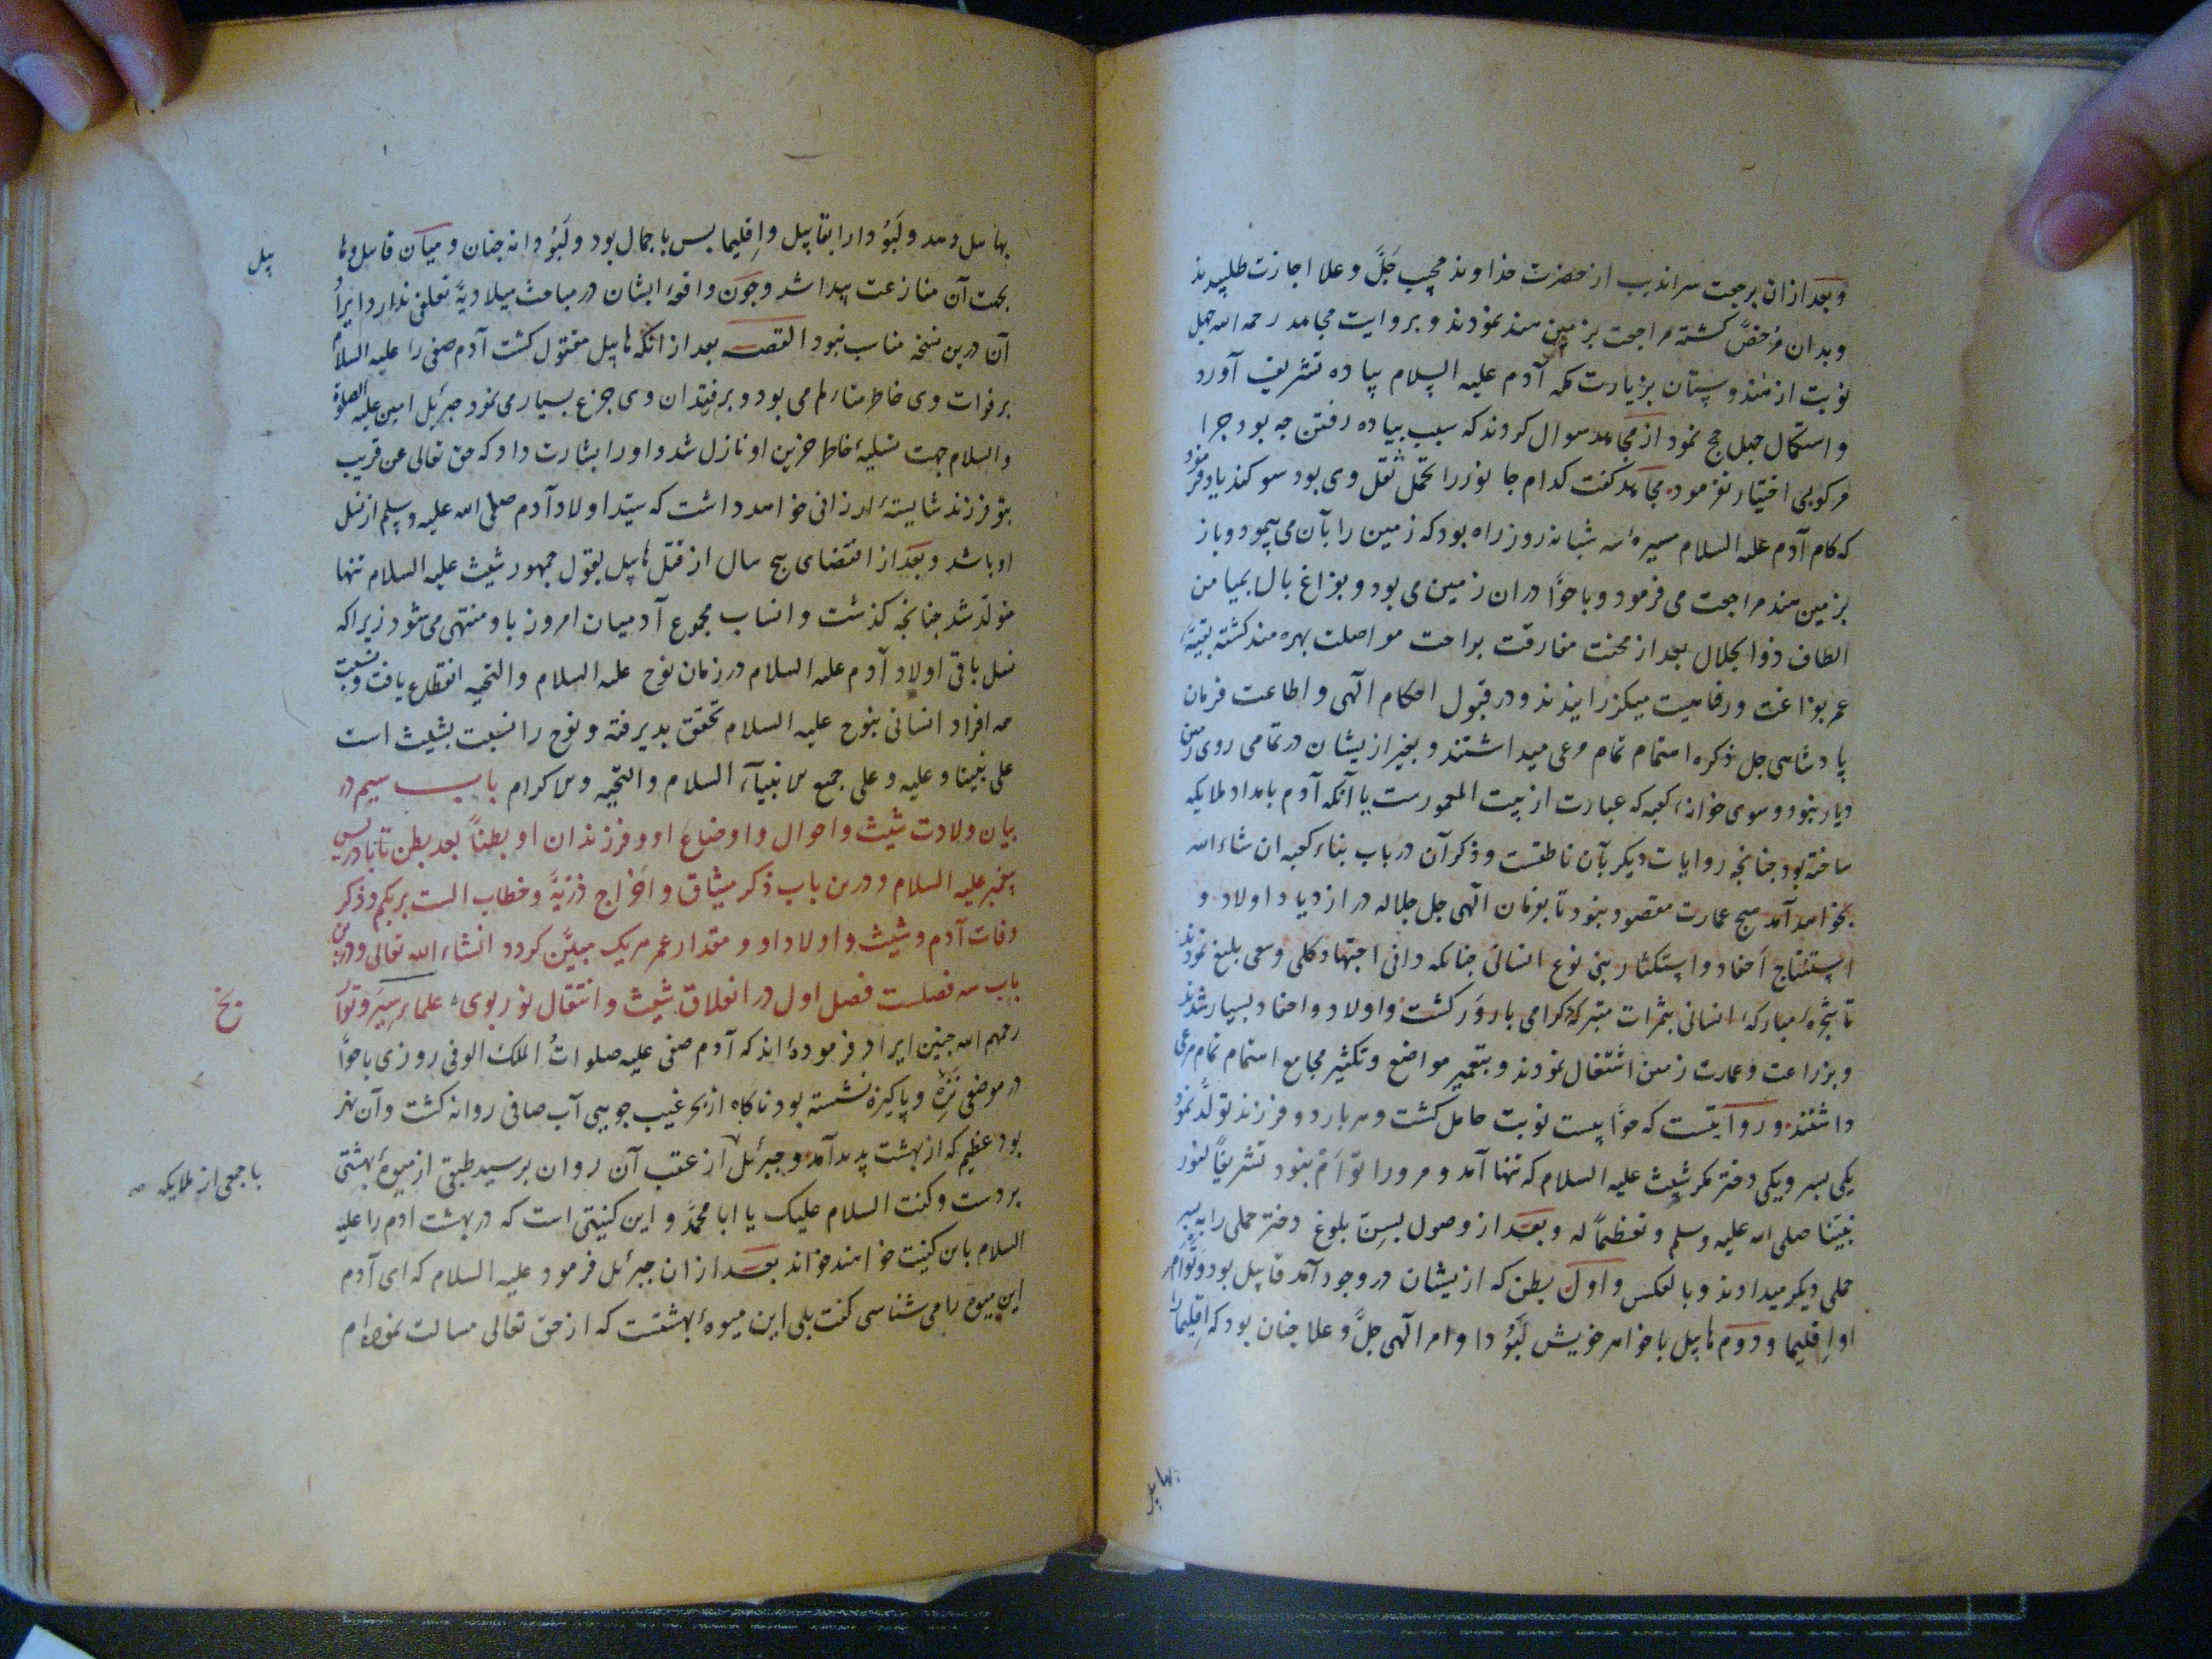 وبعد ازان برجعت سراندیب از حضرت خداوند مجیب جَلَّ وعلا اجازت طلبیدند
وبدان مرخصّ کشته مراجعت بزمین هند نمودند و بروایت مجاهد رحمه الله چهل
نوبت از هندوستان بزیارت مکه آدم علیه السلام پیاده تشریف آورد
واستکمال چهل حج نمود از مجاهد سوال کردند که سبب پیاده رفتن چه بود چرا
مرکوبی اختیار نفرمود مجاهد کفت کدام جانور را تحمل ثقل وی بود سوکند یاد فرمود
که کام آدم علیه السلام مسیرهٔ سه شبانه روز راه بود که زمین را بآن می پیمود و باز
بزمین هند مراجعت می فرمود و با حوّا دران زمین می بود و بفراغ بال بمیامن
الطاف ذوالجلال بعد از محنت مفارقت براحت مواصلت بهره مند کشته بقیهٔ
عمر بفراغت و رفاهیت میکذرانیدند و در قبول احکام الهی و اطاعت فرمان
پادشاهی جل ذکره اهتمام تمام مرعی میداشتند و بغیر ازیشان در تمامی روی زمین
دیار نبود و سوی خانهٔ کعبه که عبارت از بیت المعمورست یا آنکه آدم بامداد ملایکه
ساخته بود چنانچه روایات دیکر بآن ناطقست و ذکر آن در باب بناء کعبه ان شاء الله
بخواهد آمد هیچ عمارت مقصود نبود تا بفرمان الهی جل جلاله در ازدیاد اولاد و
استنتاج احفاد و استکثار بنی نوع انسانی چنانکه دانی اجتهاد کلی وسعی بلیغ نمودند
تا شجرهٔ مبارکهٔ انسانی بثمرات متبرکهٔ کرامی بارور کشت و اولاد و احفاد بسیار شدند
و بزراعت و عمارت زمین اشتغال نمودند و بتعمیر مواضع و تکثیر مجامع اهتمام تمام مرعی
داشتند و روایتست که حوّا بیست نوبت حامل کشت و هر بار دو فرزند تولّد نمود
یکی پسر و یکی دختر مکر شیث علیه السلام که تنها آمد و مر ورا توأم نبود تشریفاً لنور
نبیّنا صلی الله علیه وسلم و تعظیماً له و بعد از وصول بسِن بلوغ دختر حملی را به پسر
حملی دیکر میدادند و بالعکس و اول بطن که ازیشان در وجود آمد قابیل بود و توأم
او اِقلیما و دوم هابیل با خواهر خویش لَبُوٴدا و امر الهی جلّ وعلا چنان بود که اِقلیما را
بهابیل
بهابیل دهد و لَبُوٴدا را بقابیل و اِقلیما بس با جمال بود و لَبُوٴدا نه چنان و میان قابیل و ها
بیل
بجهت آن منازعت پیدا شد و چون واقعهٔ ایشان در مباحث میلادیهٔ تعلقی ندارد ایراد
آن درین نسخه مناسب نبود القصه بعد از انکه هابیل مقتول کشت آدم صفی را علیه السلام
بر فوات وی خاطر متالم می بود و بر فقدان وی جزع بسیار می نمود جبرئیل امین علیه الصلوة
والسلام جهت تسلیهٔ خاطر حزین او نازل شد و او را بشارت داد که حق تعالی عن قریب
بتو فرزند شایسته ارزانی خواهد داشت که سیّد اولاد آدم صلی الله علیه وسلم از نسل
او باشد و بعد از انقضای پنج سال از قتل هابیل بقول جمهور شیث علیه السلام تنها
متولّد شد چنانچه کذشت و انساب مجموع آدمیان امروز باو منتهی می شود زیرا که
نسل باقی اولاد آدم علیه السلام در زمان نوح علیه السلام والتحیه انقطاع یافت و نسبت
همه افراد انسانی بنوح علیه السلام تحقق پذیرفته و نوح را نسبت بشیث است
علی نبینا وعلیه وعلی جمیع الانبیآء السلام والتحیه والاکرام باب سیم در
بیان ولادت شیث و احوال و اوضاع او و فرزندان او بطناً بعد بطن تا بادریس
پیغمبر علیه السلام و درین باب ذکر میثاق و اخراج ذرّیّة و خطاب الست بربکم و ذکر
وفات آدم و شیث و اولاد او و مقدار عمر هر یک مبیّن کردد انشاء الله تعالی و درین
باب سه فصلست فصل اول در انعلاق شیث و انتقال نور نبوی علماء سِیَر و توا
ریخ
رحمهم الله چنین ایراد فرموده اند که آدم صفی علیه صلوات الملک الوفی روزی با حوّا
در موضعی نَزِه و پاکیزه نشسته بود ناکاه از بحر غیب جویی آب صافی روانه کشت و آن نهر
بود عظیم که از بهشت پدید آمد و جبرئیل از عقب آن روان برسید طبقی از میوهٔ بهشتی
با جمعی از ملایکه
بر دست و کفت السلام علیک یا ابا محمّد و این کنیتی است که در بهشت ادم را علیه
السلام باین کنیت خواهند خواند بعد ازان جبرئیل فرمود علیه السلام که ای آدم
این میوه را می شناسی کفت بلی این میوهٔ بهشتست که از حق تعالی مسالت نموده ام